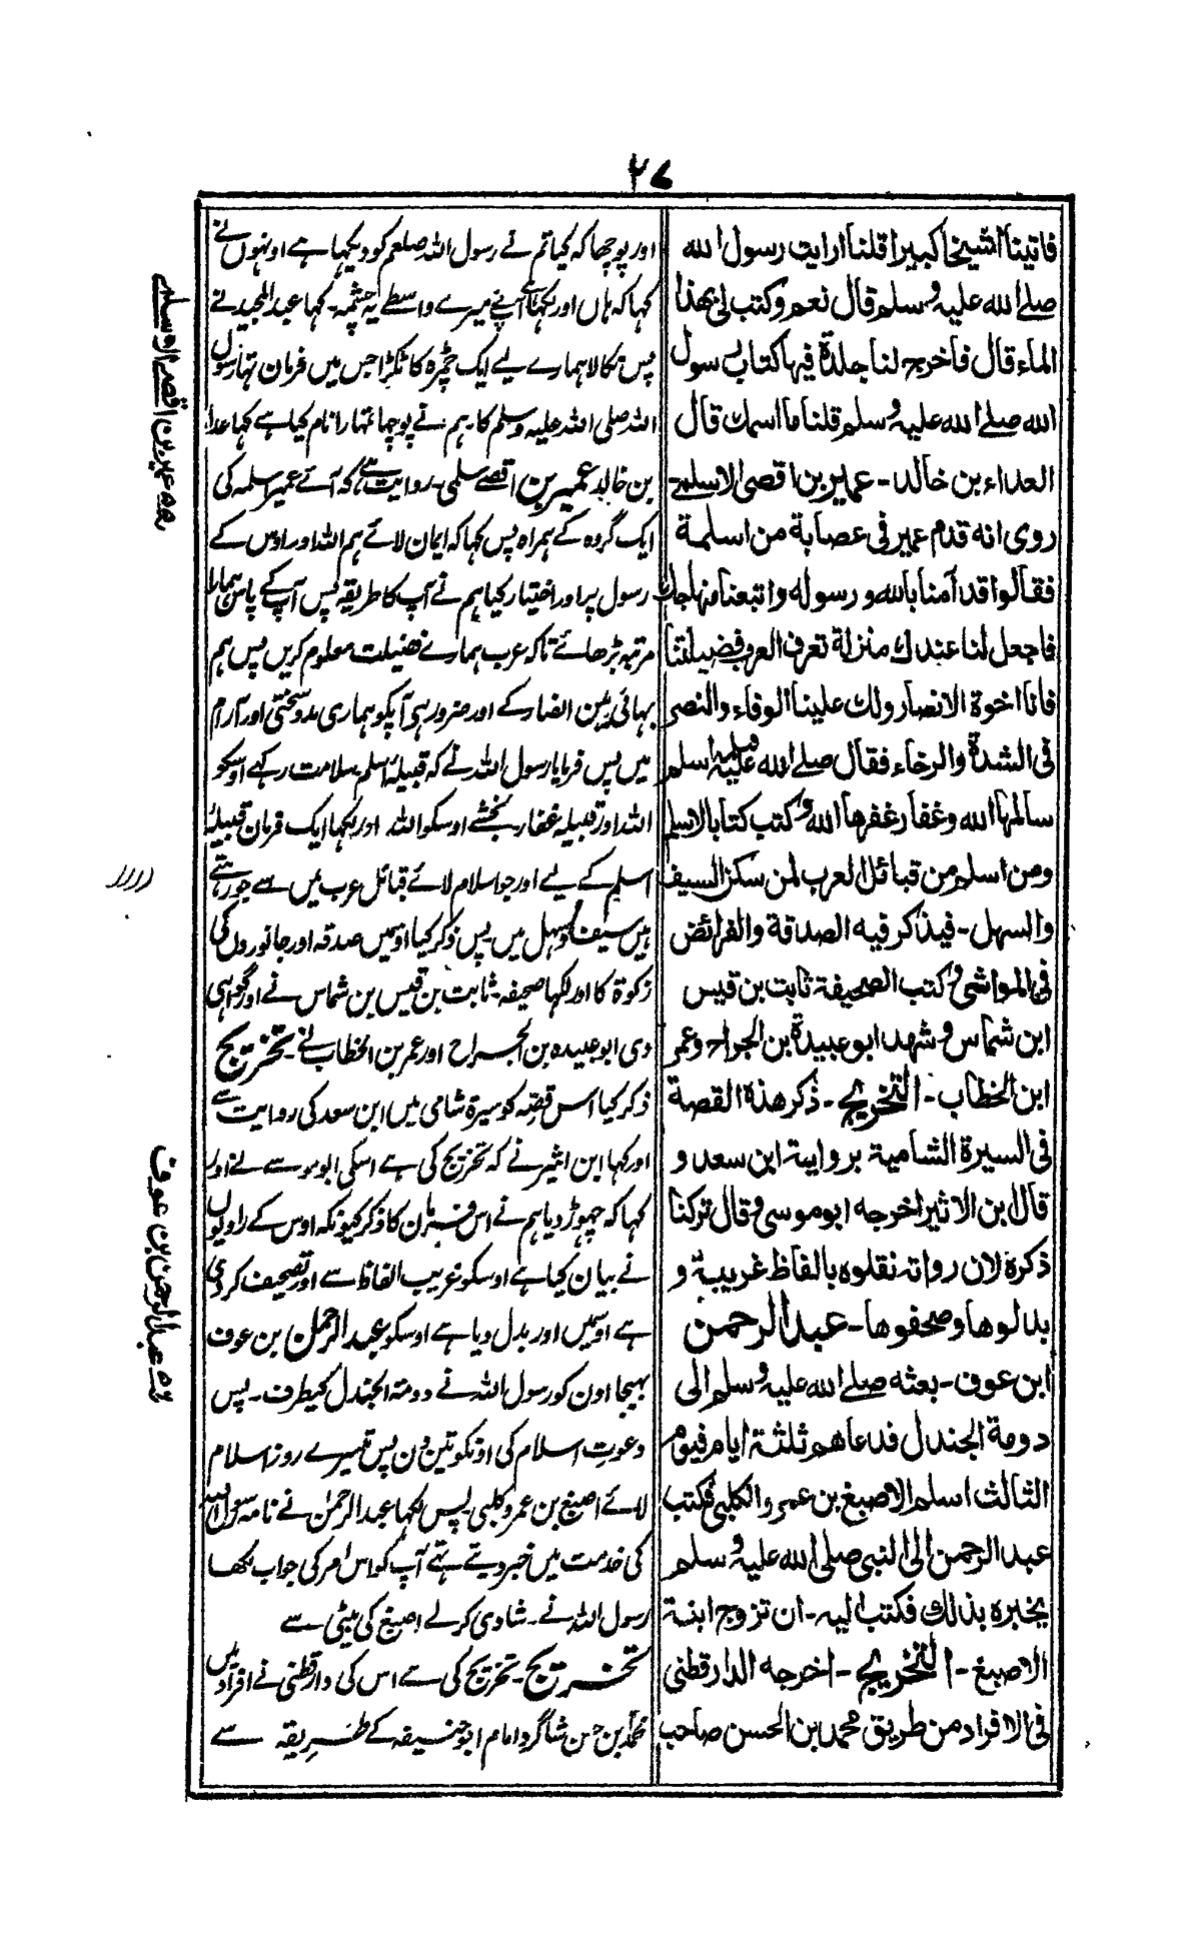 ٢٧
فاتینا شیخا کبیرا قلنا ارایت رسول الله
صلے الله علیہ وسلم قال نعم وکتب لی بھذا
الماء قال فاخرج لنا جلدة فیہا کتاب رسول
الله صلے الله علیہ وسلم قلنا ما اسمك قال
العداء بن خالد - عمیر بن اقصی الاسلمے
روی انه قدم عمیر فی عصابة من اسلمة
فقالوا قد آمنا بالله ورسوله واتبعنا منہاجك
فاجعل لنا عندك منزلة تعرف العرب فضیلتنا
فانا اخوة الانصار ولك علینا الوفاء والنصر
فی الشدة والرخاء فقال صلے الله علیہ وسلم اسلم
سالمہا الله وغفار غفرها الله وکتب کتابا لاسلم
ومن اسلم من قبائل العرب لمن سکن السیف
والسهل - فیذکر فیه الصدقة والفرائض
فی المواشی وکتب الصحیفة ثابت بن قیس
ابن شماس وشهد ابو عبیدة بن الجراح وعمر
ابن الخطاب - التخریج - ذکر هذة القصة
فی السیرة الشامیة بروایة ابن سعد و
قال ابن الاثیر اخرجه ابو موسی وقال ترکنا
ذکرة لان رواته نقلوه بالفاظ غریبة و
بدلوها وصحفوها - عبد الرحمن
ابن عوف - بعثه صلے الله علیہ وسلم الی
دومة الجندل فدعاهم ثلثة ایام فیوم
الثالث اسلم الاصبغ بن عمرو الکلبی فکتب
عبد الرحمن الی النبی صلی الله علیہ وسلم
یخبره بذلك فکتب الیه - ان تزوج ابنة
الاصبغ - التخریج - اخرجه الدارقطنی
فی الافراد من طریق محمد بن الحسن صاحب
اور پوچھا کہ کیا تم نے رسول اللہ صلعم کو دیکہا ہے اونہوں نے
کہا کہ ہاں اور لکہا ہے آپنے میرے واسطے یہ چشمہ۔ کہا عبدالمجید نے
پس نکالا ہمارے لیے ایک چمڑہ کا ٹکڑا جس میں فرمان تہا رسول
اللہ صلی اللہ علیہ وسلم کا۔ ہم نے پوچھا تمہارا نام کیا ہے کہا عداء
بن خالد عمیر بن اقصے سلمی۔ روایت ہے کہ آئے عمیر اسلمہ کی
ایک گروہ کے ہمراہ پس کہا کہ ایمان لائے ہم اللہ اور اوس کے
رسول پر اور اختیار کیا ہم نے آپ کا طریقہ پس آپ کے پاس ہمارا
مرتبہ بڑھائے تاکہ عرب ہمارے فضیلت معلوم کریں پس ہم
بہائی ہیں انصار کے اور ضرور ہی آپکو ہماری مدد سختی اور آرام
میں پس فرمایا رسول اللہ نے کہ قبیلہ اسلم سلامت رکہے اوسکو
اللہ اور قبیلہ غفار بخشے اوسکو اللہ اور لکہا ایک فرمان قبیلہ
اسلم کے لیے اور جو اسلام لائے قبائل عرب میں سے جو رہتے
ہیں سیف وسہل میں پس ذکر کیا اوسمیں صدقہ اور جانوروں کی
زکوة کا اور لکہا صحیفہ ثابت بن قیس بن شماس نے اور گواہی
دی ابو عبیدہ بن الجراح اور عمر بن الخطاب نے۔ تخریج
ذکر کیا اس قصہ کو سیرة شامی میں ابن سعد کی روایت سے
اور کہا ابن اثیر نے کہ تخریج کی ہے اسکی ابو موسے نے اور
کہا کہ چہوڑ دیا ہم نے اس فرمان کا ذکر کیونکہ اوس کے راویوں
نے بیان کیا ہے اوسکو غریب الفاظ سے اور تصحیف کردی
ہے اوسمیں اور بدل دیا ہے اوسکو عبد الرحمٰن بن عوف
بہیجا اون کو رسول اللہ نے دومتہ الجندل کیطرف۔ پس
دعوت اسلام کی اونکو تین دن پس تیسرے روز اسلام
لائے اصبغ بن عمرو کلبی۔ پس لکہا عبد الرحمٰن نے نامہ رسول اللہ
کی خدمت میں خبر دیتے تہے آپ کو اس امر کی جواب لکھا
رسول اللہ نے۔ شادی کر لے اصبغ کی بیٹی سے
تخریج۔ تخریج کی ہے اس کی دارقطنی نے افراد میں
محمد بن حسن شاگرد امام ابو حنیفہ کے طریقہ سے
عمیر بن اقصے
عبد الرحمن بن عوف